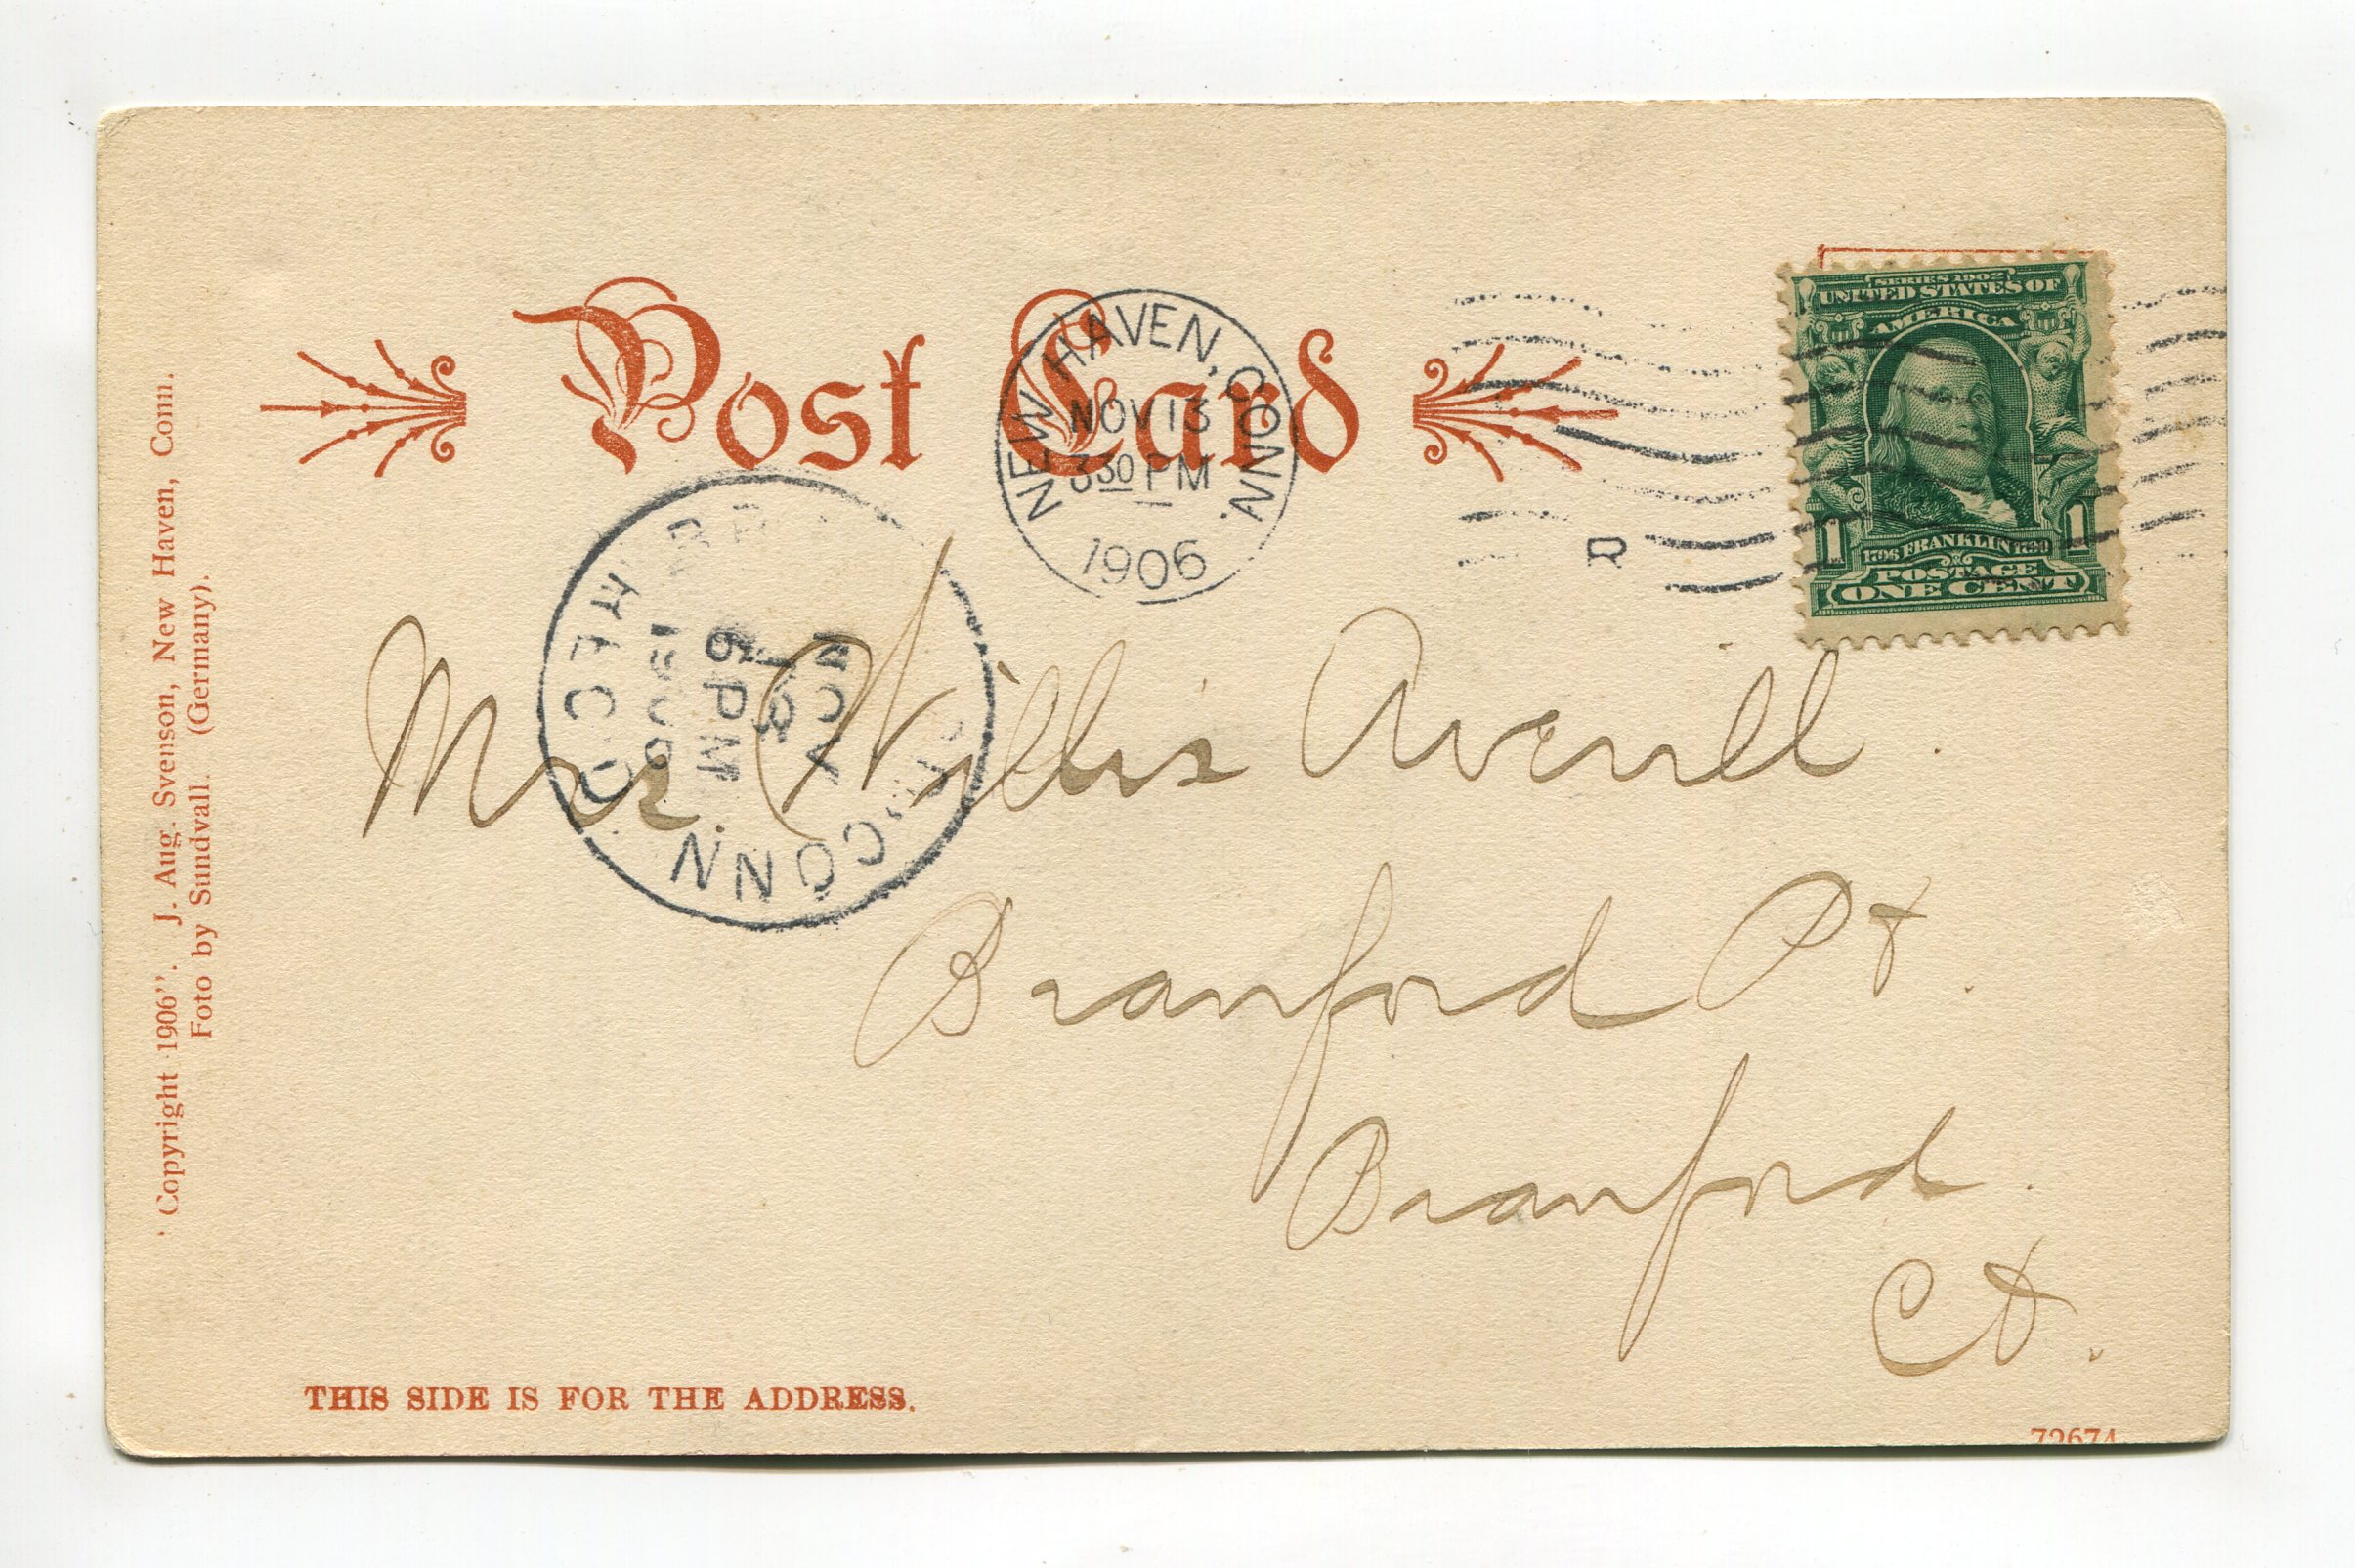 Post Card
NEW HAVEN, CONN.
NOV 13
3 30 PM
1906
SERIES 1902
UNITED STATES OF
AMERICA
1 1706 FRANKLIN 1790 1
POSTAGE
ONE CENT
R
CONN.
REC'D.
NOV
13
6 PM
1906
Mrs. Willis Averill.
Branford Pt.
Branford.
Ct.
Copyright 1906". J. Aug. Svenson, New Haven, Conn.
Foto by Sundvall. (Germany).
THIS SIDE IS FOR THE ADDRESS.
72674